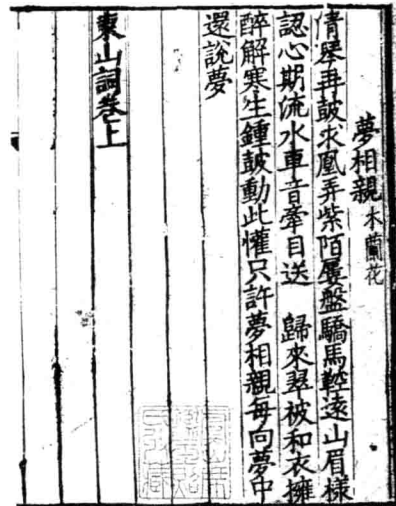 夢相親 木蘭花
清琴再皷求凰弄紫陌屢盤驕馬鞚遠山眉樣
認心期流水車音牽目送　歸來翠被和衣擁
醉解寒生鍾皷動此懽只許夢相親每向夢中
還說夢
東山詞卷上